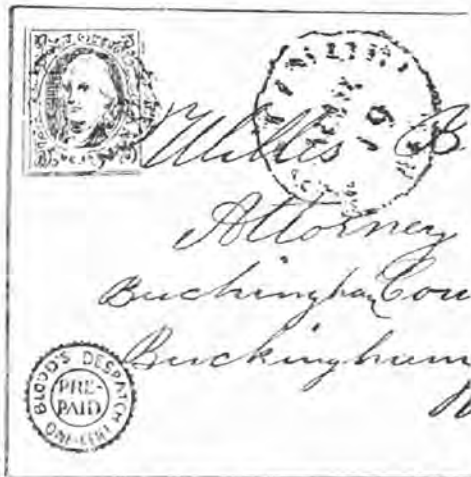 Willis B
Attorney
Buckingham Cou
Buckingham
BLOOD'S DESPATCH
PRE-
PAID
ONE-CENT